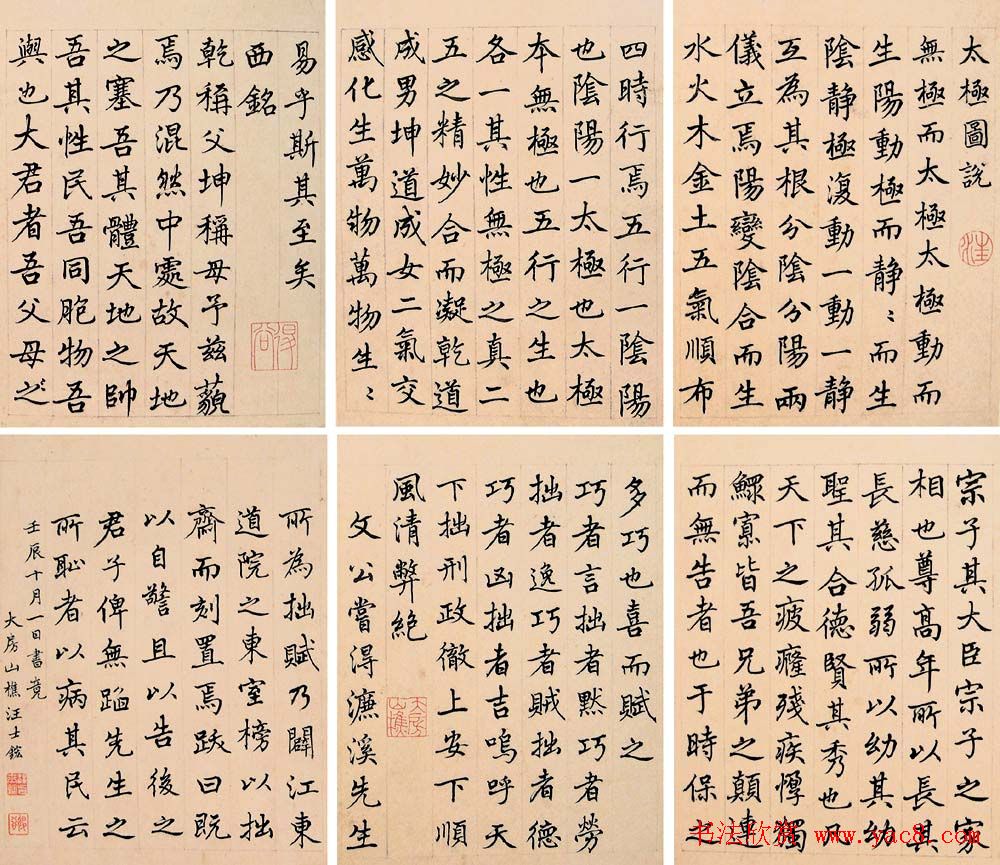 太極圖説
無極而太極太極動而
生陽動極而静〻而生
陰静極復動一動一静
互為其根分陰分陽兩
儀立焉陽變陰合而生
水火木金土五氣順布
四時行焉五行一陰陽
也陰陽一太極也太極
本無極也五行之生也
各一其性無極之真二
五之精妙合而凝乾道
成男坤道成女二氣交
感化生萬物萬物生〻
易乎斯其至矣
西銘
乾稱父坤稱母予兹藐
焉乃混然中處故天地
之塞吾其體天地之帥
吾其性民吾同胞物吾
與也大君者吾父母之
宗子其大臣宗子之家
相也尊高年所以長其
長慈孤弱所以幼其幼
聖其合德賢其秀也凡
天下之疲癃殘疾惸獨
鰥寡皆吾兄弟之顛連
而無告者也于時保之
多巧也喜而賦之
巧者言拙者默巧者勞
拙者逸巧者賊拙者德
巧者凶拙者吉嗚呼天
下拙刑政徹上安下順
風清弊絶
文公嘗得濂溪先生
所為拙賦乃闢江東
道院之東室榜以拙
齋而刻置焉跋曰既
以自警且以告後之
君子俾無蹈先生之
所恥者以病其民云
壬辰十月一日書竟
大房山樵汪士鋐
大房山樵
书法欣赏 www.yac8.com